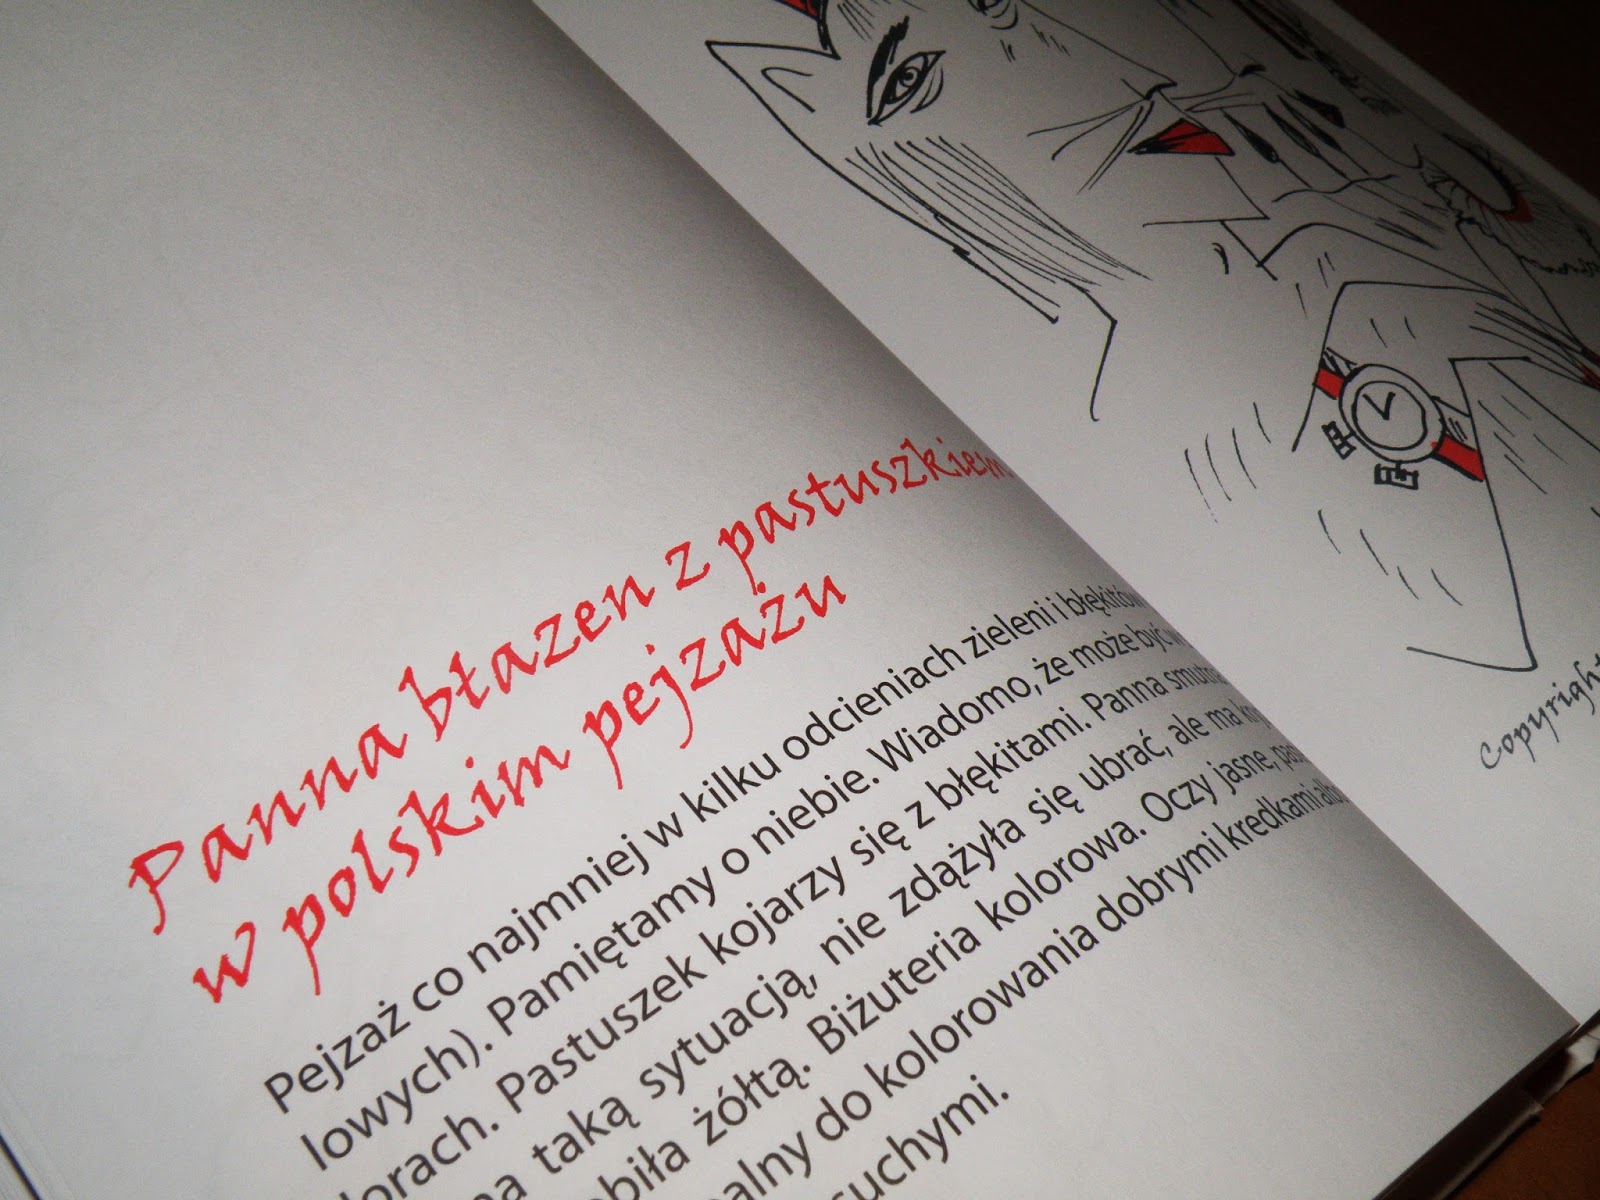 Panna błazen z pastuszkiem
w polskim pejzażu
Pejzaż co najmniej w kilku odcieniach zieleni i błękitów
lowych). Pamiętamy o niebie. Wiadomo, że może być w
lorach. Pastuszek kojarzy się z błękitami. Panna smutna
na taką sytuacją, nie zdążyła się ubrać, ale ma
obiła żółtą. Biżuteria kolorowa. Oczy jasne,
alny do kolorowania dobrymi kredkami albo
suchymi.
Copyright